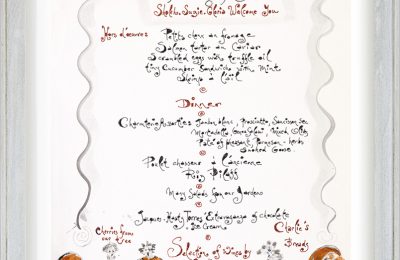 Shelih, Suzie, Gloria Welcome You
Hors d'œuvres
Petits choux au fromage
Salmon tartar au Caviar
Scrambled eggs with truffle oil
tiny Cucumber Sandwiches with mint
Shrimp à l'ail
Dinner
Charcuterie Assorties Jambon blanc, Prosciutto, Saucisson Sec
Mortadella, Genoa Salami, Mixed Olives
Pate of pheasant, Parmesan - herbs
Smoked Goose
Poulet chasseur à l'ancienne
Riz Pilaff
Many Salads from our Gardens
Jacques - Monty Torres' Extravaganza of chocolate
Ice Cream
Cherries from our tree
Charlie's Breads
Selection of Wines by